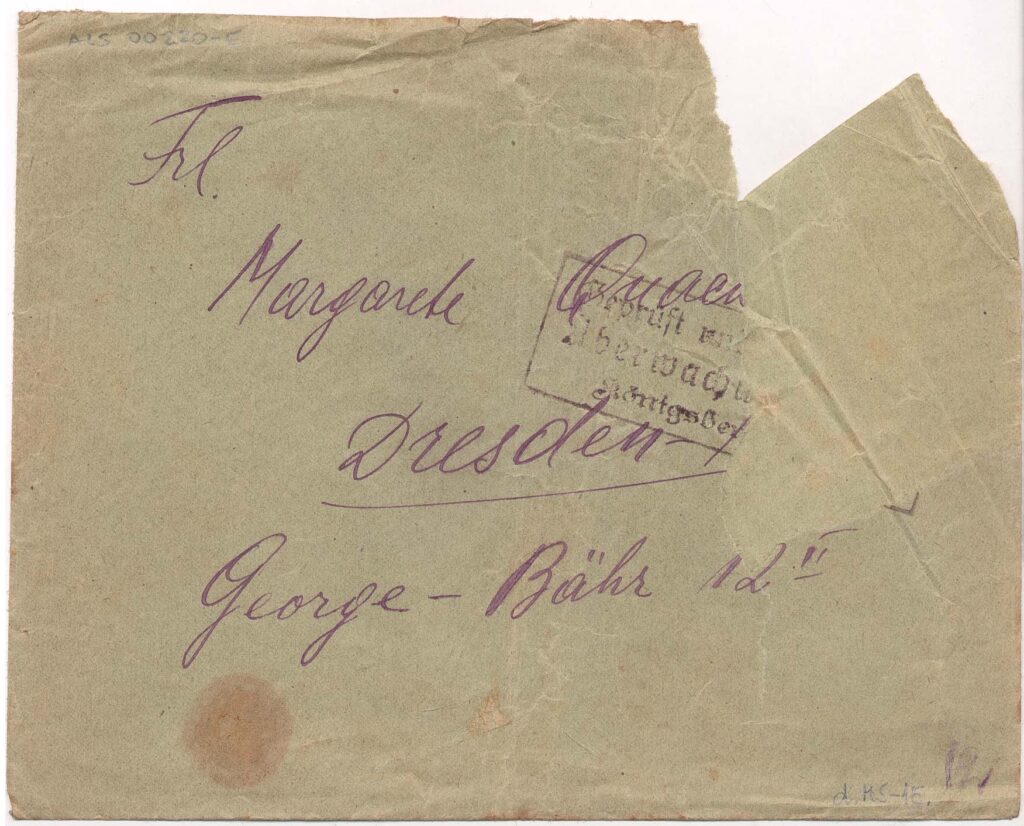 ALS 00220-E
Frl.
Margarete Quaen
Geprüft und
Überwachu
Königsber
Dresden
George-Bähr 12 II
12